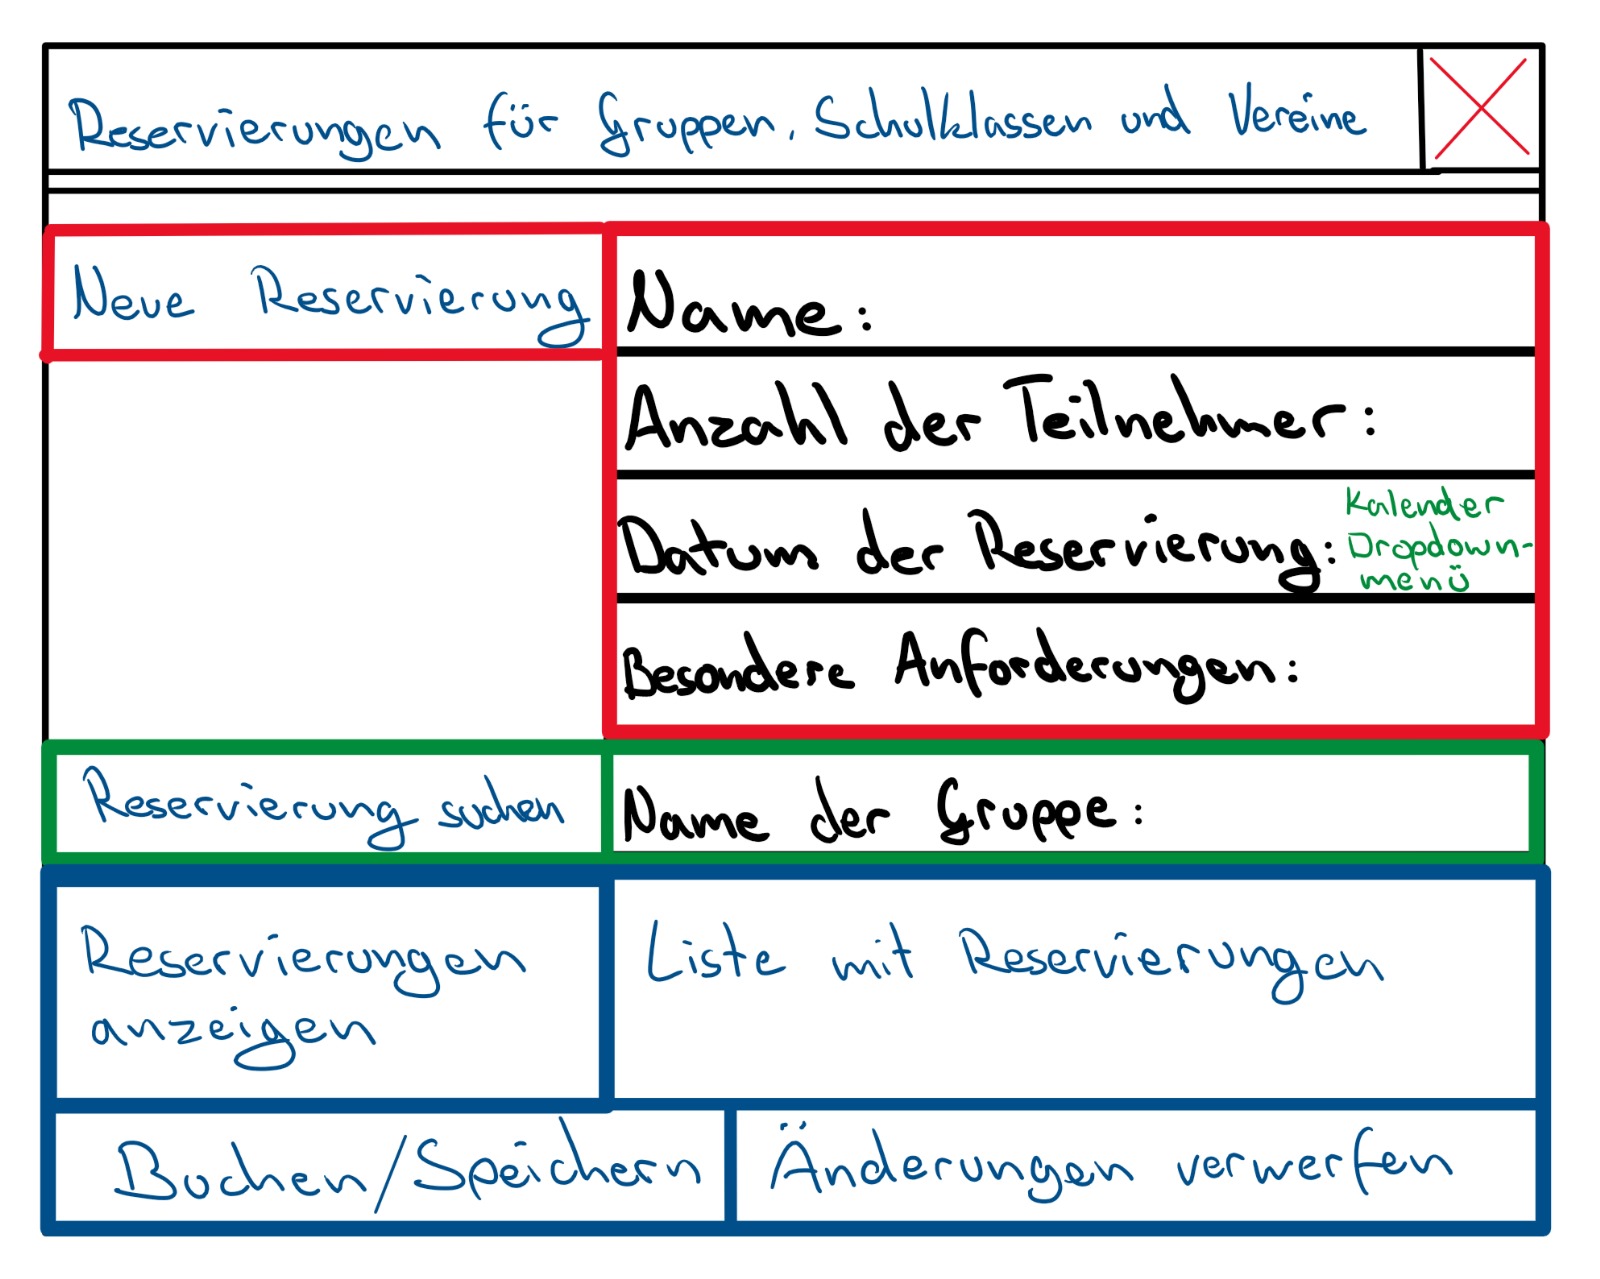 Reservierungen für Gruppen, Schulklassen und Vereine
Neue Reservierung
Name:
Anzahl der Teilnehmer:
Datum der Reservierung:
Kalender
Dropdown-
menü
Besondere Anforderungen:
Reservierung suchen
Name der Gruppe:
Reservierungen
anzeigen
Liste mit Reservierungen
Buchen/Speichern
Änderungen verwerfen